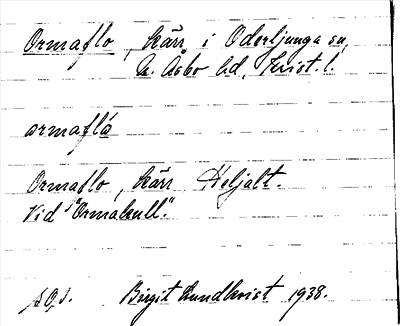 Ormaflo, kärr i Oderljunga sn,
N. Åsbo hd, Krist. l.
ormaflå
Ormaflo, kärr Heljalt.
Vid "Ormakull".
Birgit Lundkvist 1938.